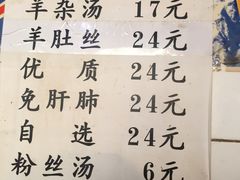 羊杂汤 17元
羊肚丝 24元
优质 24元
免肝肺 24元
自选 24元
粉丝汤 6元